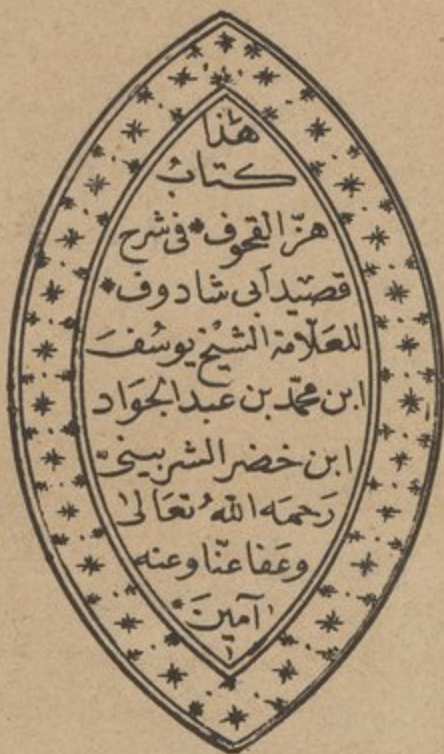 هٰذا
كتاب
هزّ القحوف * فى شرح
قصيد أبى شادوف *
للعَلّامة الشيْخ يوسُفَ
ابن محمّد بن عبد الجوَاد
ابن خضر الشربينىّ
رَحمَه اللهُ تعَالىٰ
وعَفا عنّا وعنه
آمينَ *